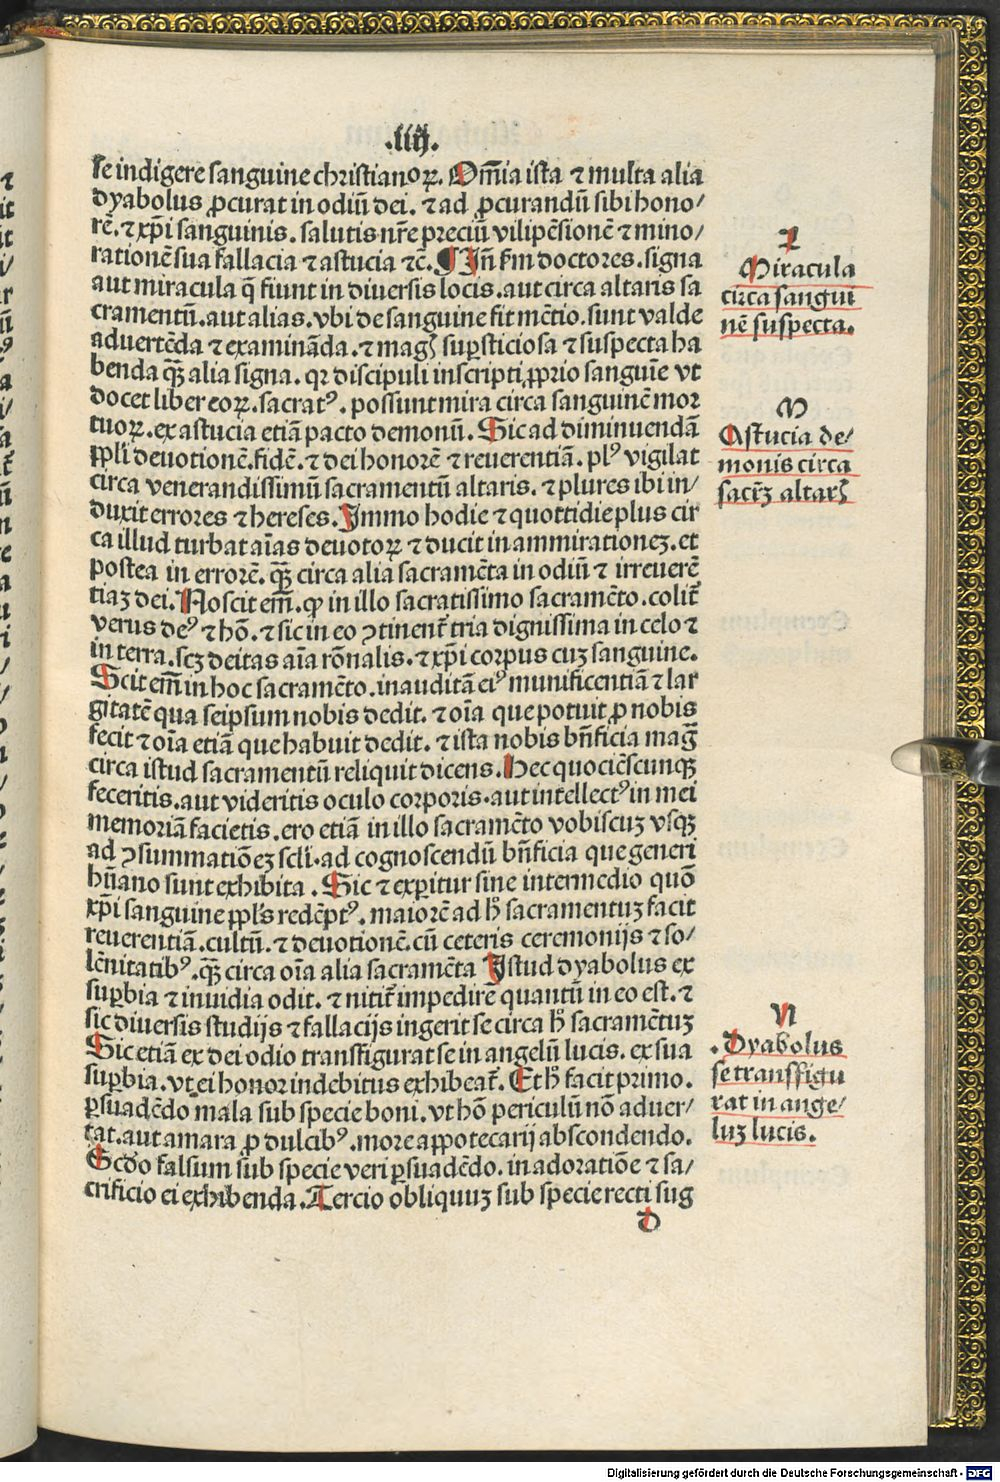 .iiij.
se indigere sanguine christianoꝝ. Om̄ia ista ⁊ multa alia
dyabolus ꝓcurat in odiū dei. ⁊ ad ꝓcurandū sibi hono/
rē. ⁊ xp̄i sanguinis. salutis nr̄e preciū vilipēsionē ⁊ mino/
rationē sua fallacia ⁊ astucia ⁊c̄. ¶ Jn̄ ẜm doctores. signa
aut miracula q̄ fiunt in diuersis locis. aut circa altaris sa
cramentū. aut alias. vbi de sanguine fit mētio. sunt valde
aduertēda ⁊ examināda. ⁊ magꝭ suꝑsticiosa ⁊ suspecta ha
benda qꝫ̄ alia signa. qꝛ discipuli inscripti ꝓprio sanguīe vt
docet liber eoꝝ. sacratꝰ. possunt mira circa sanguinē mor
tuoꝝ. ex astucia etiā pacto demonū. Sic ad diminuendā
ppl̄i deuotionē. fidē. ⁊ dei honorē ⁊ reuerentiā. plꝰ vigilat
circa venerandissimū sacramentū altaris. ⁊ plures ibi in/
duxit errores ⁊ hereses. Jmmo hodie ⁊ quottidie plus cir
ca illud turbat aīas deuotoꝝ ⁊ ducit in ammirationeꝫ. et
postea in errorē. qꝫ̄ circa alia sacramēta in odiū ⁊ irreuerē
tiaꝫ dei. Noscit em̄. ꝙ in illo sacratissimo sacramēto. colit᷑
verus deꝰ ⁊ hō. ⁊ sic in eo ꝯtinent᷑ tria dignissima in celo ⁊
in terra. scꝫ deitas aīa rōnalis. ⁊ xp̄i corpus cuꝫ sanguine.
Scit em̄ in hoc sacramēto. inauditā eiꝰ munificentiā ⁊ lar
gitatē qua seipsum nobis dedit. ⁊ oīa que potuit ꝓ nobis
fecit ⁊ oīa etiā que habuit dedit. ⁊ ista nobis bn̄ficia maḡ
circa istud sacramentū reliquit dicens. Hec quociēscunqꝫ
feceritis. aut videritis oculo corporis. aut intellectꝰ in mei
memoriā facietis. ero etiā in illo sacramēto vobiscuꝫ vsqꝫ
ad ꝯsummatiōeꝫ scl̄i. ad cognoscendū bn̄ficia que generi
hūano sunt exhibita. Sic ⁊ exꝑitur sine intermedio quō
xp̄i sanguine ppl̄s redēptꝰ. maiorē ad h̄ sacramentuꝫ facit
reuerentiā. cultū. ⁊ deuotionē. cū ceteris ceremonijs ⁊ so/
lēnitatibꝰ. qꝫ̄ circa oīa alia sacramēta Jstud dyabolus ex
suꝑbia ⁊ inuidia odit. ⁊ nitit᷑ impedire quantū in eo est. ⁊
sic diuersis studijs ⁊ fallacijs ingerit se circa h̄ sacramētuꝫ
Sic etiā ex dei odio transfigurat se in angelū lucis. ex sua
suꝑbia. vt ei honor indebitus exhibeat᷑. Et h̄ facit primo.
ꝑsuadēdo mala sub specie boni. vt hō periculū nō aduer/
tat. aut amara ꝓ dulcibꝰ. more appotecarij abscondendo.
Scd̄o falsum sub specie veri ꝑsuadēdo. in adoratiōe ⁊ sa/
crificio ei exhibenda. Tercio obliquuꝫ sub specie recti sug
d
L
Miracula
circa sangui
nē suspecta.
M
Astucia de/
monis circa
sacr̄ꝫ altarꝭ
N
. Dyabolus
se transfigu
rat in ange/
luꝫ lucis.
Digitalisierung gefördert durch die Deutsche Forschungsgemeinschaft - DFG